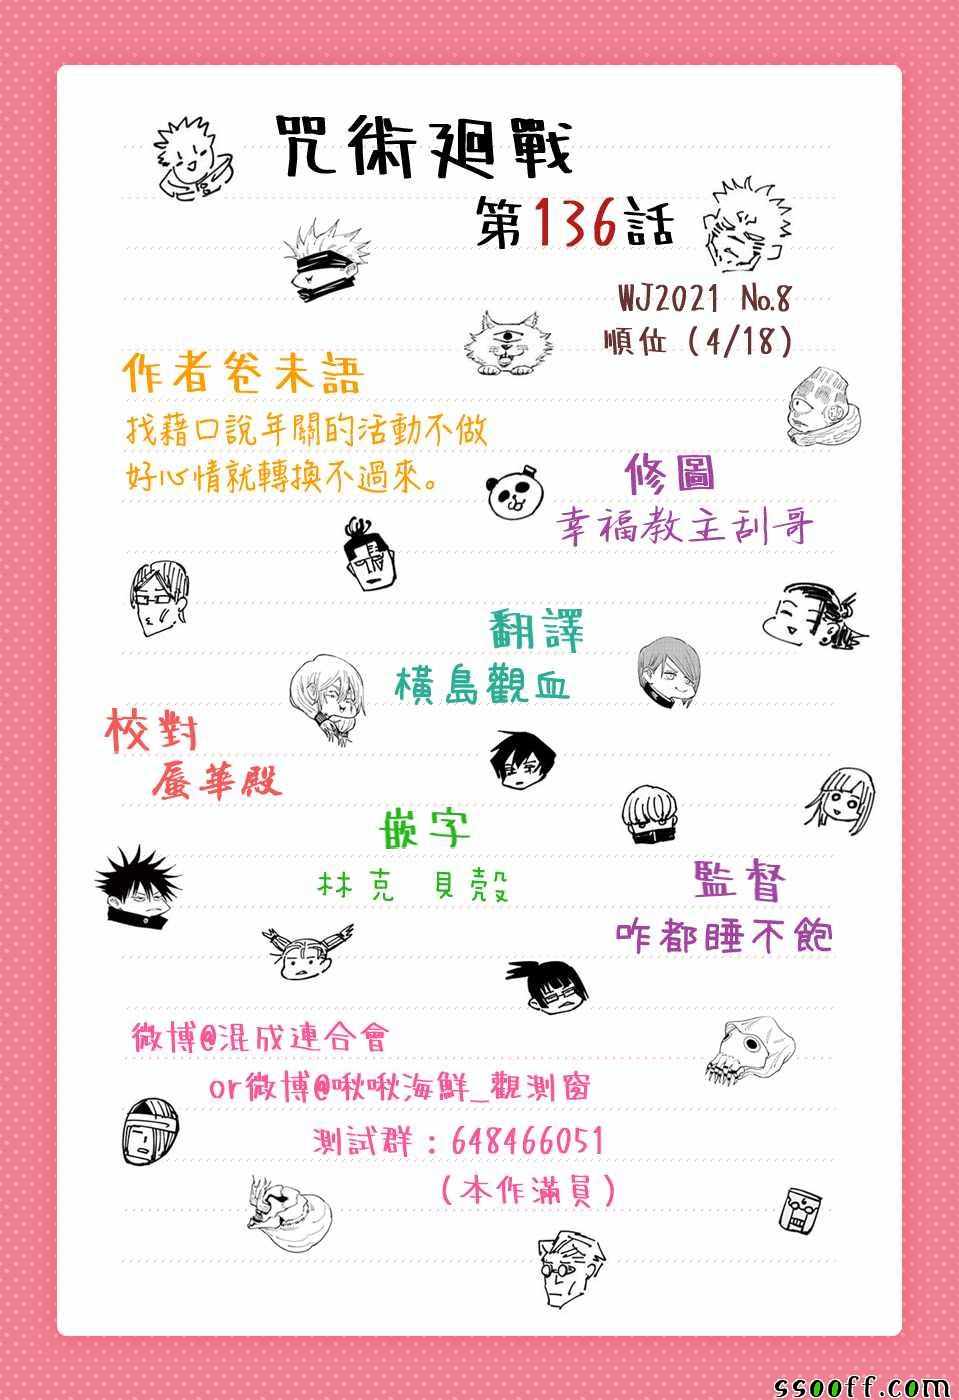 咒術迴戰
第136話
WJ2021 No.8
順位（4/18）
作者卷末語
找藉口說年關的活動不做
好心情就轉換不過來。
修圖
幸福教主刮哥
翻譯
橫島觀血
校對
蜃華殿
嵌字
林克 貝殼
監督
咋都睡不飽
微博@混成連合會
or微博@啾啾海鮮_觀測窗
測試群：648466051
（本作滿員）
ssooff.com